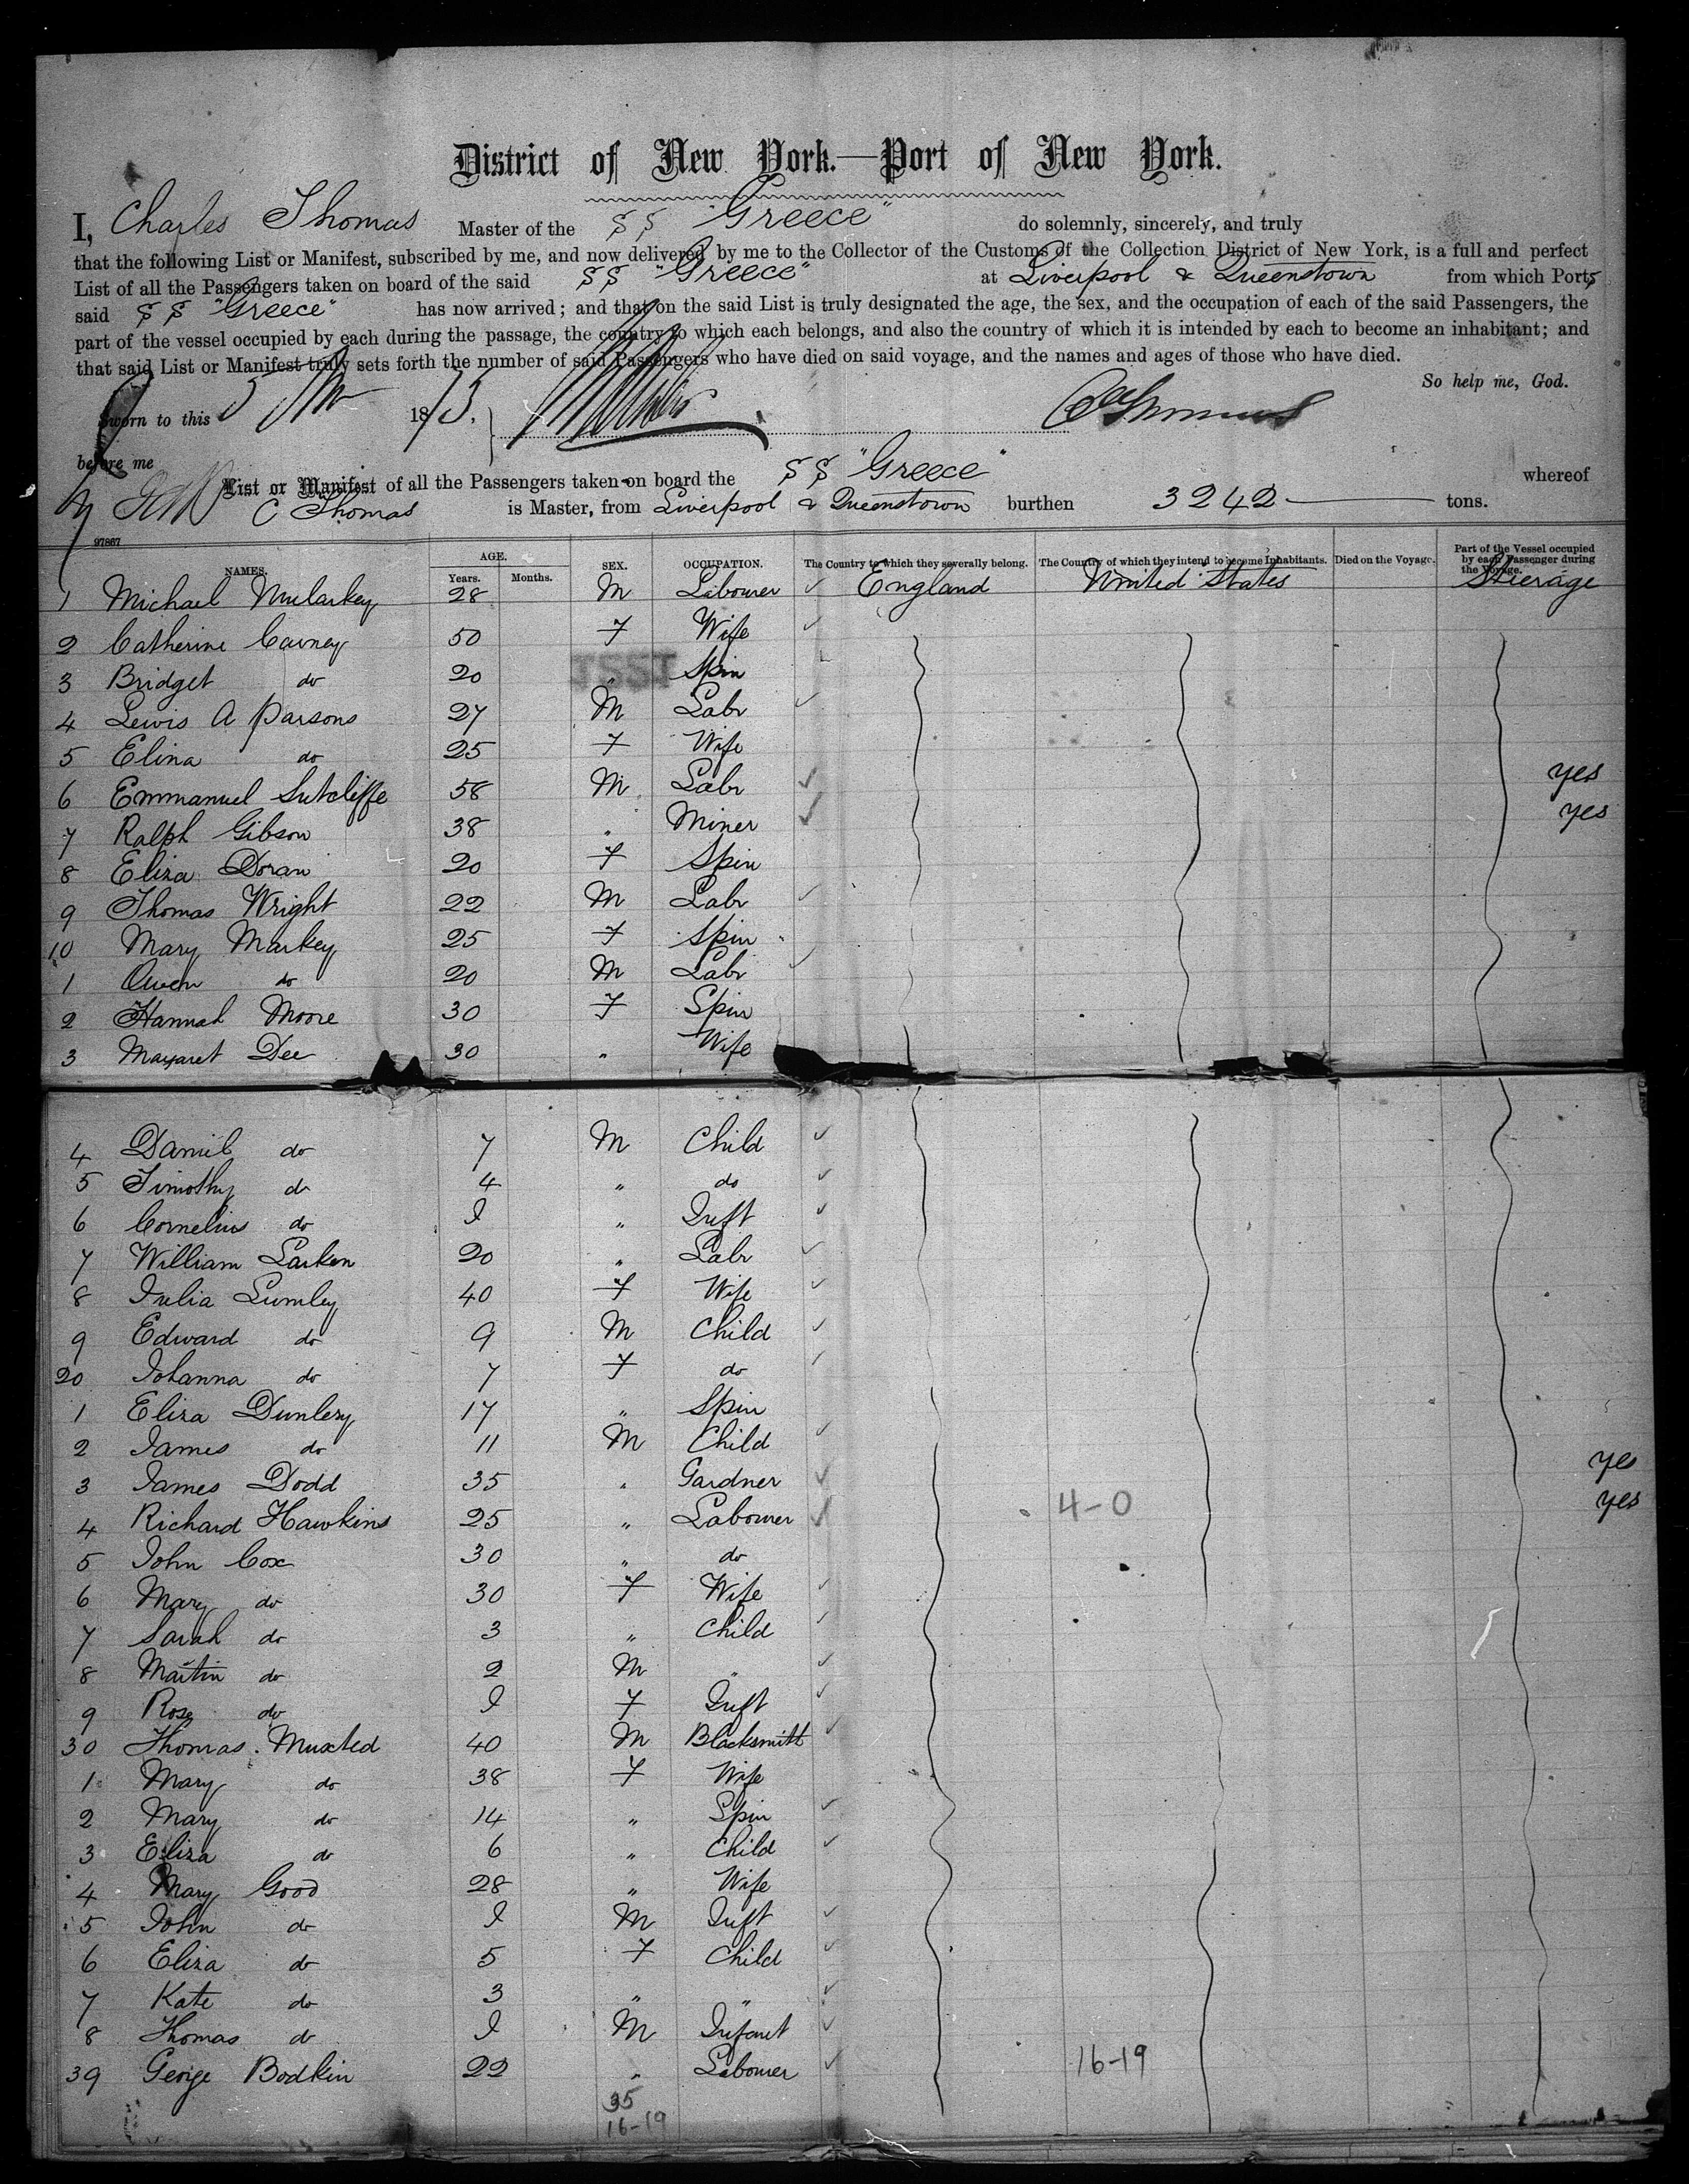 District of New York.—Port of New York.
I, Charles Thomas Master of the SS "Greece" do solemnly, sincerely, and truly
that the following List or Manifest, subscribed by me, and now delivered by me to the Collector of the Customs of the Collection District of New York, is a full and perfect
List of all the Passengers taken on board of the said SS "Greece" at Liverpool & Queenstown from which Ports
said SS "Greece" has now arrived; and that on the said List is truly designated the age, the sex, and the occupation of each of the said Passengers, the
part of the vessel occupied by each during the passage, the country to which each belongs, and also the country of which it is intended by each to become an inhabitant; and
that said List or Manifest truly sets forth the number of said Passengers who have died on said voyage, and the names and ages of those who have died.
So help me, God.
Sworn to this 5 1873. C Thomas
before me
List or Manifest of all the Passengers taken on board the SS "Greece" whereof
C Thomas is Master, from Liverpool & Queenstown burthen 3242 tons.
97867
NAMES. AGE. Years. Months. SEX. OCCUPATION. The Country to which they severally belong. The Country of which they intend to become Inhabitants. Died on the Voyage. Part of the Vessel occupied by each Passenger during the Voyage.
1 Michael Mularkey 28 M Labourer England United States Steerage
2 Catherine Cavney 50 F Wife
3 Bridget do 20 " Spin
4 Lewis A Parsons 27 M Labr
5 Elina do 25 F Wife
6 Emmanuel Sutcliffe 58 M Labr yes
7 Ralph Gibson 38 " Miner yes
8 Eliza Doran 20 F Spin
9 Thomas Wright 22 M Labr
10 Mary Markey 25 F Spin
1 Owen do 20 M Labr
2 Hannah Moore 30 F Spin
3 Margaret Dee 30 " Wife
4 Daniel do 7 M Child
5 Timothy do 4 " do
6 Cornelius do I " Inft
7 William Larken 20 " Labr
8 Julia Lumley 40 F Wife
9 Edward do 9 M Child
20 Johanna do 7 F do
1 Eliza Dunlezy 17 " Spin
2 James do 11 M Child
3 James Dodd 35 " Gardner yes
4 Richard Hawkins 25 " Labourer 4-0 yes
5 John Cox 30 " do
6 Mary do 30 F Wife
7 Sarah do 3 " Child
8 Martin do 2 M "
9 Rose do I F Inft
30 Thomas Muxted 40 M Blacksmith
1 Mary do 38 F Wife
2 Mary do 14 " Spin
3 Eliza do 6 " Child
4 Mary Good 28 " Wife
5 John do I M Inft
6 Eliza do 5 F Child
7 Kate do 3 " "
8 Thomas do I M Infant
39 George Bodkin 22 " Labourer 16-19
35
16-19